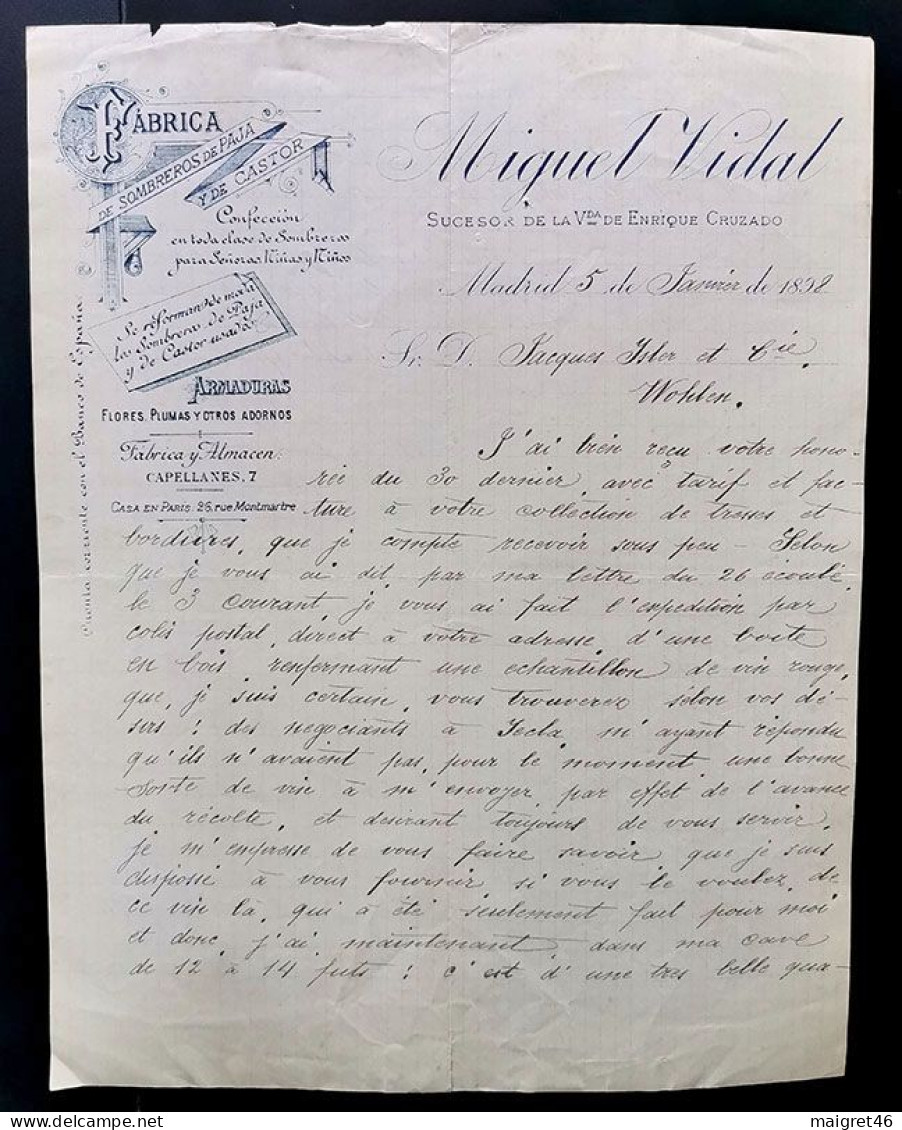 FÁBRICA
DE SOMBREROS DE PAJA
Y DE CASTOR
Confección
en toda clase de Sombreros
para Señoras, Niñas y Niños
Se reforman de moda
los Sombreros de Paja
y de Castor usados
ARMADURAS
FLORES, PLUMAS Y OTROS ADORNOS
Fábrica y Almacen:
CAPELLANES, 7
CASA EN PARÍS: 26, rue Montmartre
Cuenta corriente con el Banco de España
Miguel Vidal
SUCESOR DE LA VDA DE ENRIQUE CRUZADO
Madrid 5 de Janvier de 1898
Sr. D. Jacques Isler et Cie.
Wohlen.
J'ai bien reçu votre hono-
rée du 30 dernier, avec tarif et fac-
ture à votre collection de tresses et
bordures, que je compte recevoir sous peu – Selon
que je vous ai dit par ma lettre du 26 écoulé
le 3 courant, je vous ai fait l'expedition par
colis postal, direct à votre adresse d'une boite
en bois renfermant une echantillon de vin rouge,
que, je suis certain, vous trouverez selon vos dé-
sirs : des negociants à Yecla m'ayant répondu
qu'ils n'avaient pas, pour le moment une bonne
sorte de vin à m'envoyer, par effet de l'avance
du récolte, et desirant toujours de vous servir,
je m'empresse de vous faire savoir que je suis
disposé à vous fournir, si vous le voulez, de
ce vin là, qui a été seulement fait pour moi
et donc j'ai maintenant dans ma cave
de 12 à 14 futs : c'est d'une tres belle qua-
delcampe.net
maigret46